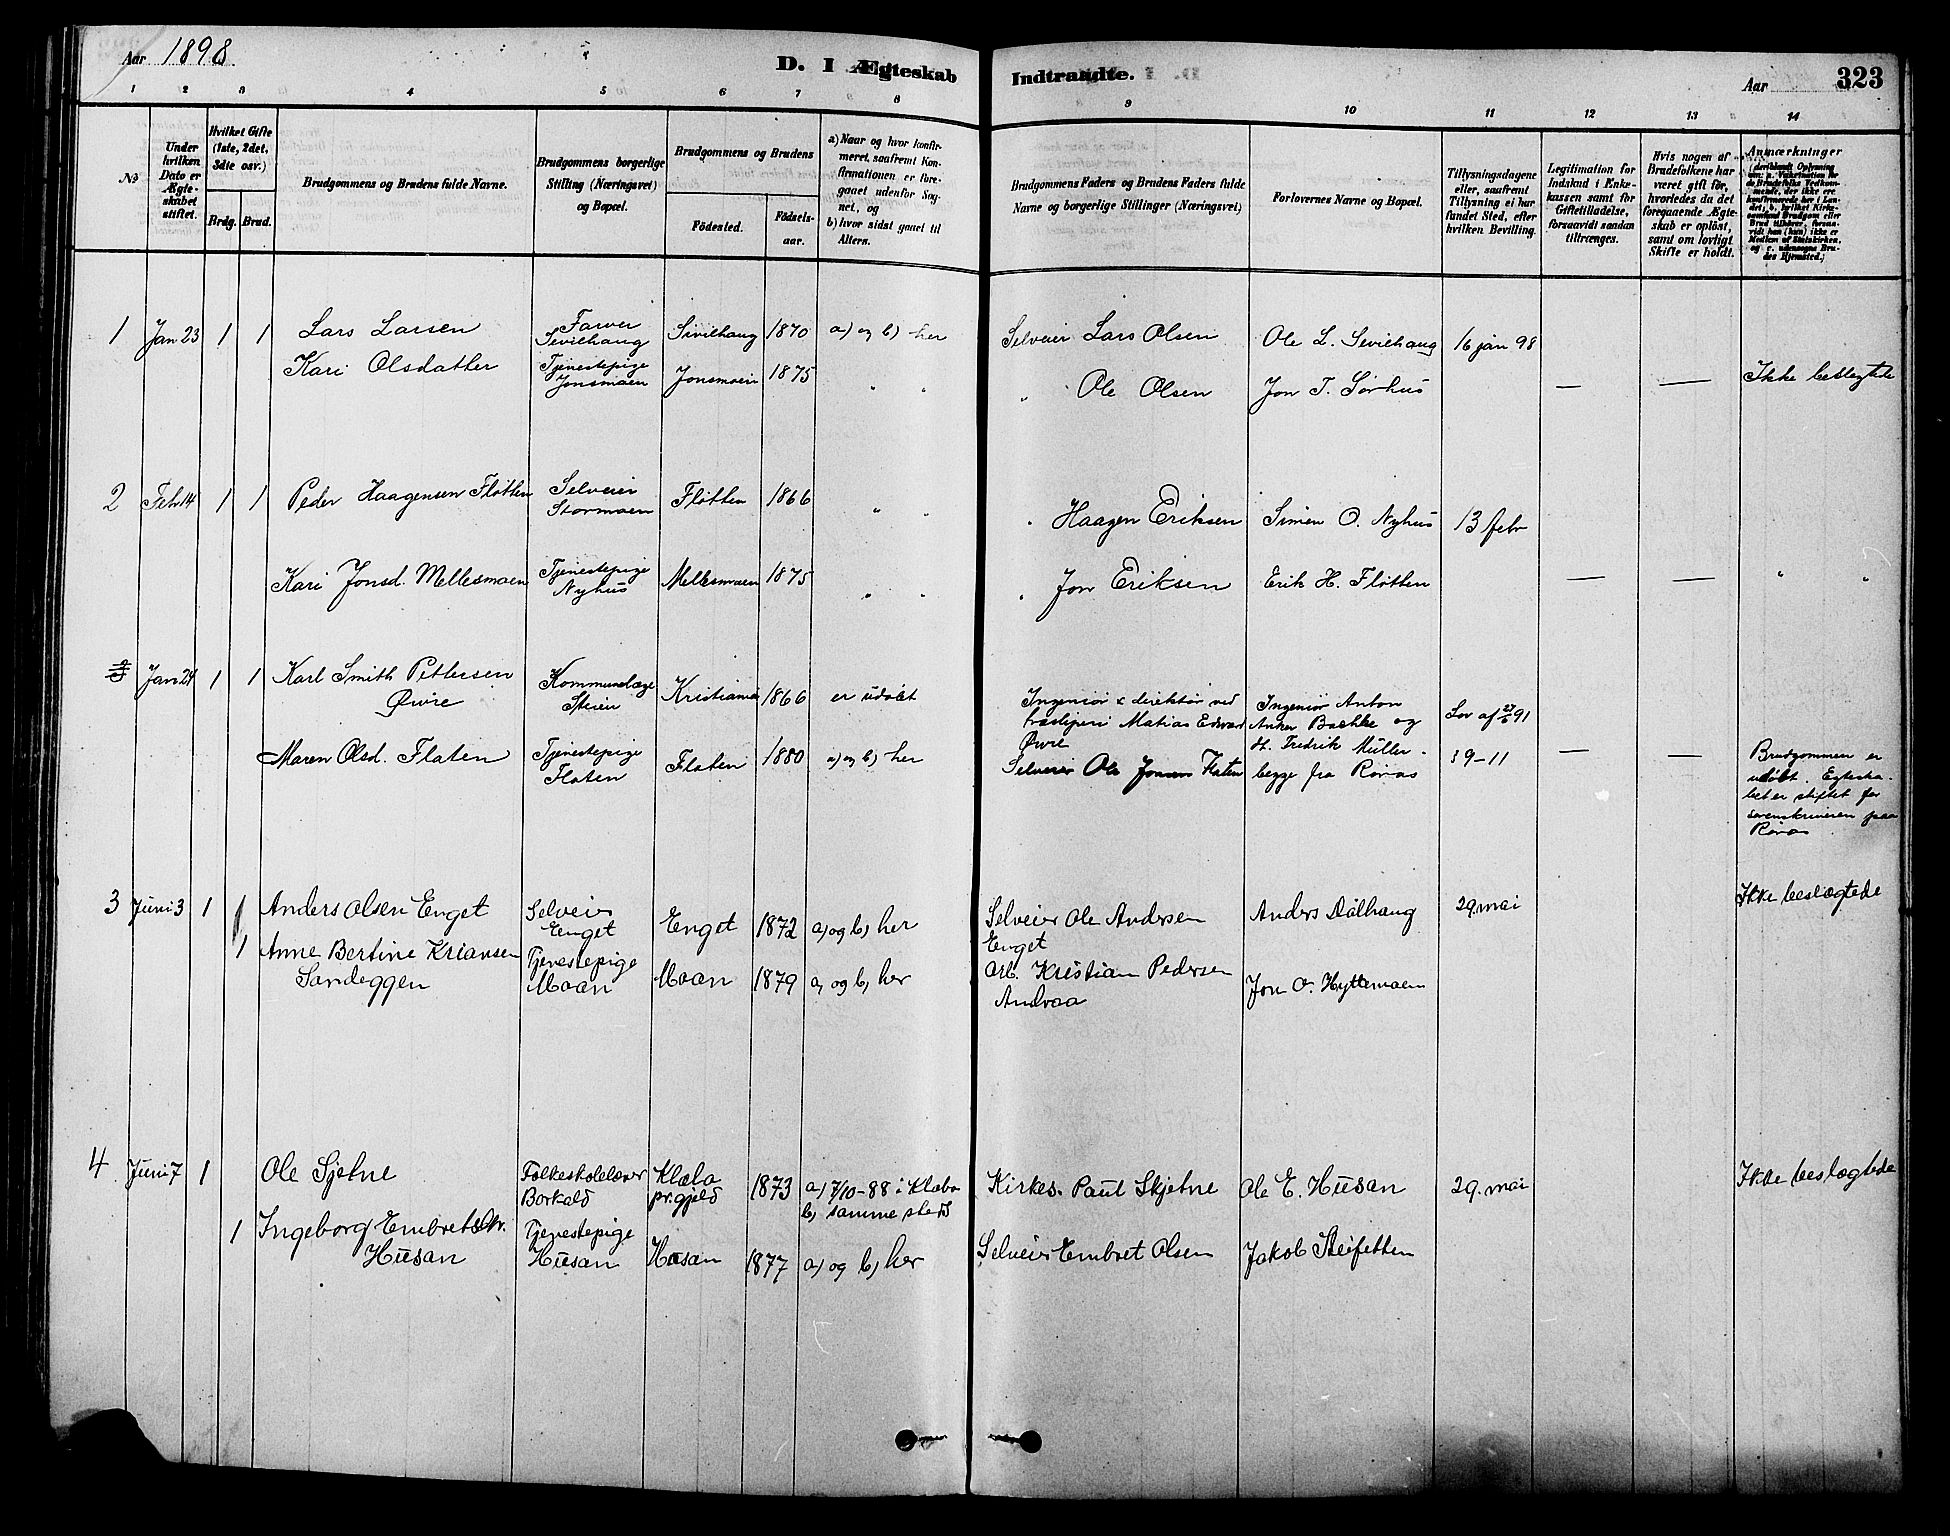 Aar 1898.
D. I Ægteskab Indtraadte.
Aar 323
1 2 3 4 5 6 7 8 9 10 11 12 13 14
No
Under hvilken Dato er Ægte-skabet stiftet.
Hvilket Gifte (1ste, 2det, 3die osv.)
Brdg. Brud.
Brudgommens og Brudens fulde Navne.
Brudgommens borgerlige Stilling (Næringsvei) og Bopæl.
Brudgommens og Brudens
Födested. Födsels-aar.
a) Naar og hvor konfir-meret, saafremt Kon-firmationen er fore-gaaet udenfor Sog-net, og
b) hvor sidst gaaet til Alters.
Brudgommens Faders og Brudens Faders fulde Navne og borgerlige Stillinger (Næringsvei)
Forlovernes Navne og Bopæl.
Tillysningsdagene eller, saafremt Tillysning ei har fundet Sted, efter hvilken Bevilling.
Legitimation for Indskud i Enke-kassen samt for Giftetilladelse, forsaavidt saadan tiltrænges.
Hvis nogen af Brudefolkene har været gift för, hvorledes da det foregaaende Ægte-skab er oplöst, samt om lovligt Skifte er holdt.
Anmærkninger
1 Jan 23 1 1 Lars Larsen Farver Sivilhaug Sivilhaug 1870 a) og b) her Selveier Lars Olsen Ole L. Sivilhaug 16 jan 98
Kari Olsdatter Tjenestepige Jonsmoen Jonsmoen 1875 " " " Ole Olsen Jon T. Sörhus — — Ikke beslegtede
2 Febr 14 1 1 Peder Haagensen Fløtten Selveier Stormoen Fløtten 1866 " " " Haagen Eriksen Simen O. Nyhus 13 febr
Kari Jonsd. Mellesmoen Tjenestepige Nyhus Mellesmoen 1875 " " " Jon Eriksen Erik H. Fløtten — — " "
Jan 24 1 1 Karl Smith Pettersen Øvre Kommunelæge Steien Kristiania 1866 er udøbt Ingeniør & direktør ved Matias Edvard Øvre Ingeniør Anton Anker Bachke og Fredrik Müller Lov af 27/6 91
Maren Olsd. Flaten Tjenestepige Flaten Flaten 1880 a) og b) her Selveier Ole Jonsen Flaten begge fra Røros § 9-11 — — Brudgommen er udøbt. Egteska-bet er stiftet for sorenskriveren paa Røros
3 Juni 3 1 1 Anders Olsen Enget Selveier Enget Enget 1872 a) og b) her Selveier Ole Andersen Enget Anders Dalhaug 29. mai Ikke beslægtede
1 Anne Bertine Kriansen Sandeggen Tjenestepige Moan Moan 1879 a, og b, her Arb. Kristian Pedersen Andraa Jon O. Hyttemoen
4 Juni 7 1 Ole Sjetne Folkeskolelærer Borkald Klæbo pr.gjeld 1873 a) 7/10-88 i Klæbo b, samme sted Kirkes. Paul Skjetne Ole E. Husan 29. mai Ikke beslægtede
1 Ingeborg Embretsdtr. Husan Tjenestepige Husan Husan 1877 a) og b) her Selveier Embret Olsen Jakob Steifetten